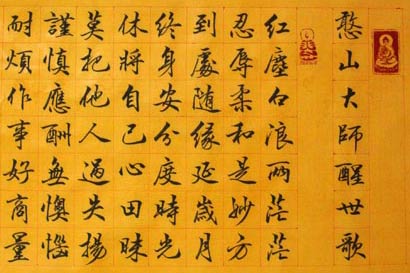 憨山大師醒世歌
紅塵白浪兩茫茫
忍辱柔和是妙方
到處隨緣延歲月
終身安分度時光
休將自己心田昧
莫把他人過失揚
謹慎應酬無懊惱
耐煩作事好商量